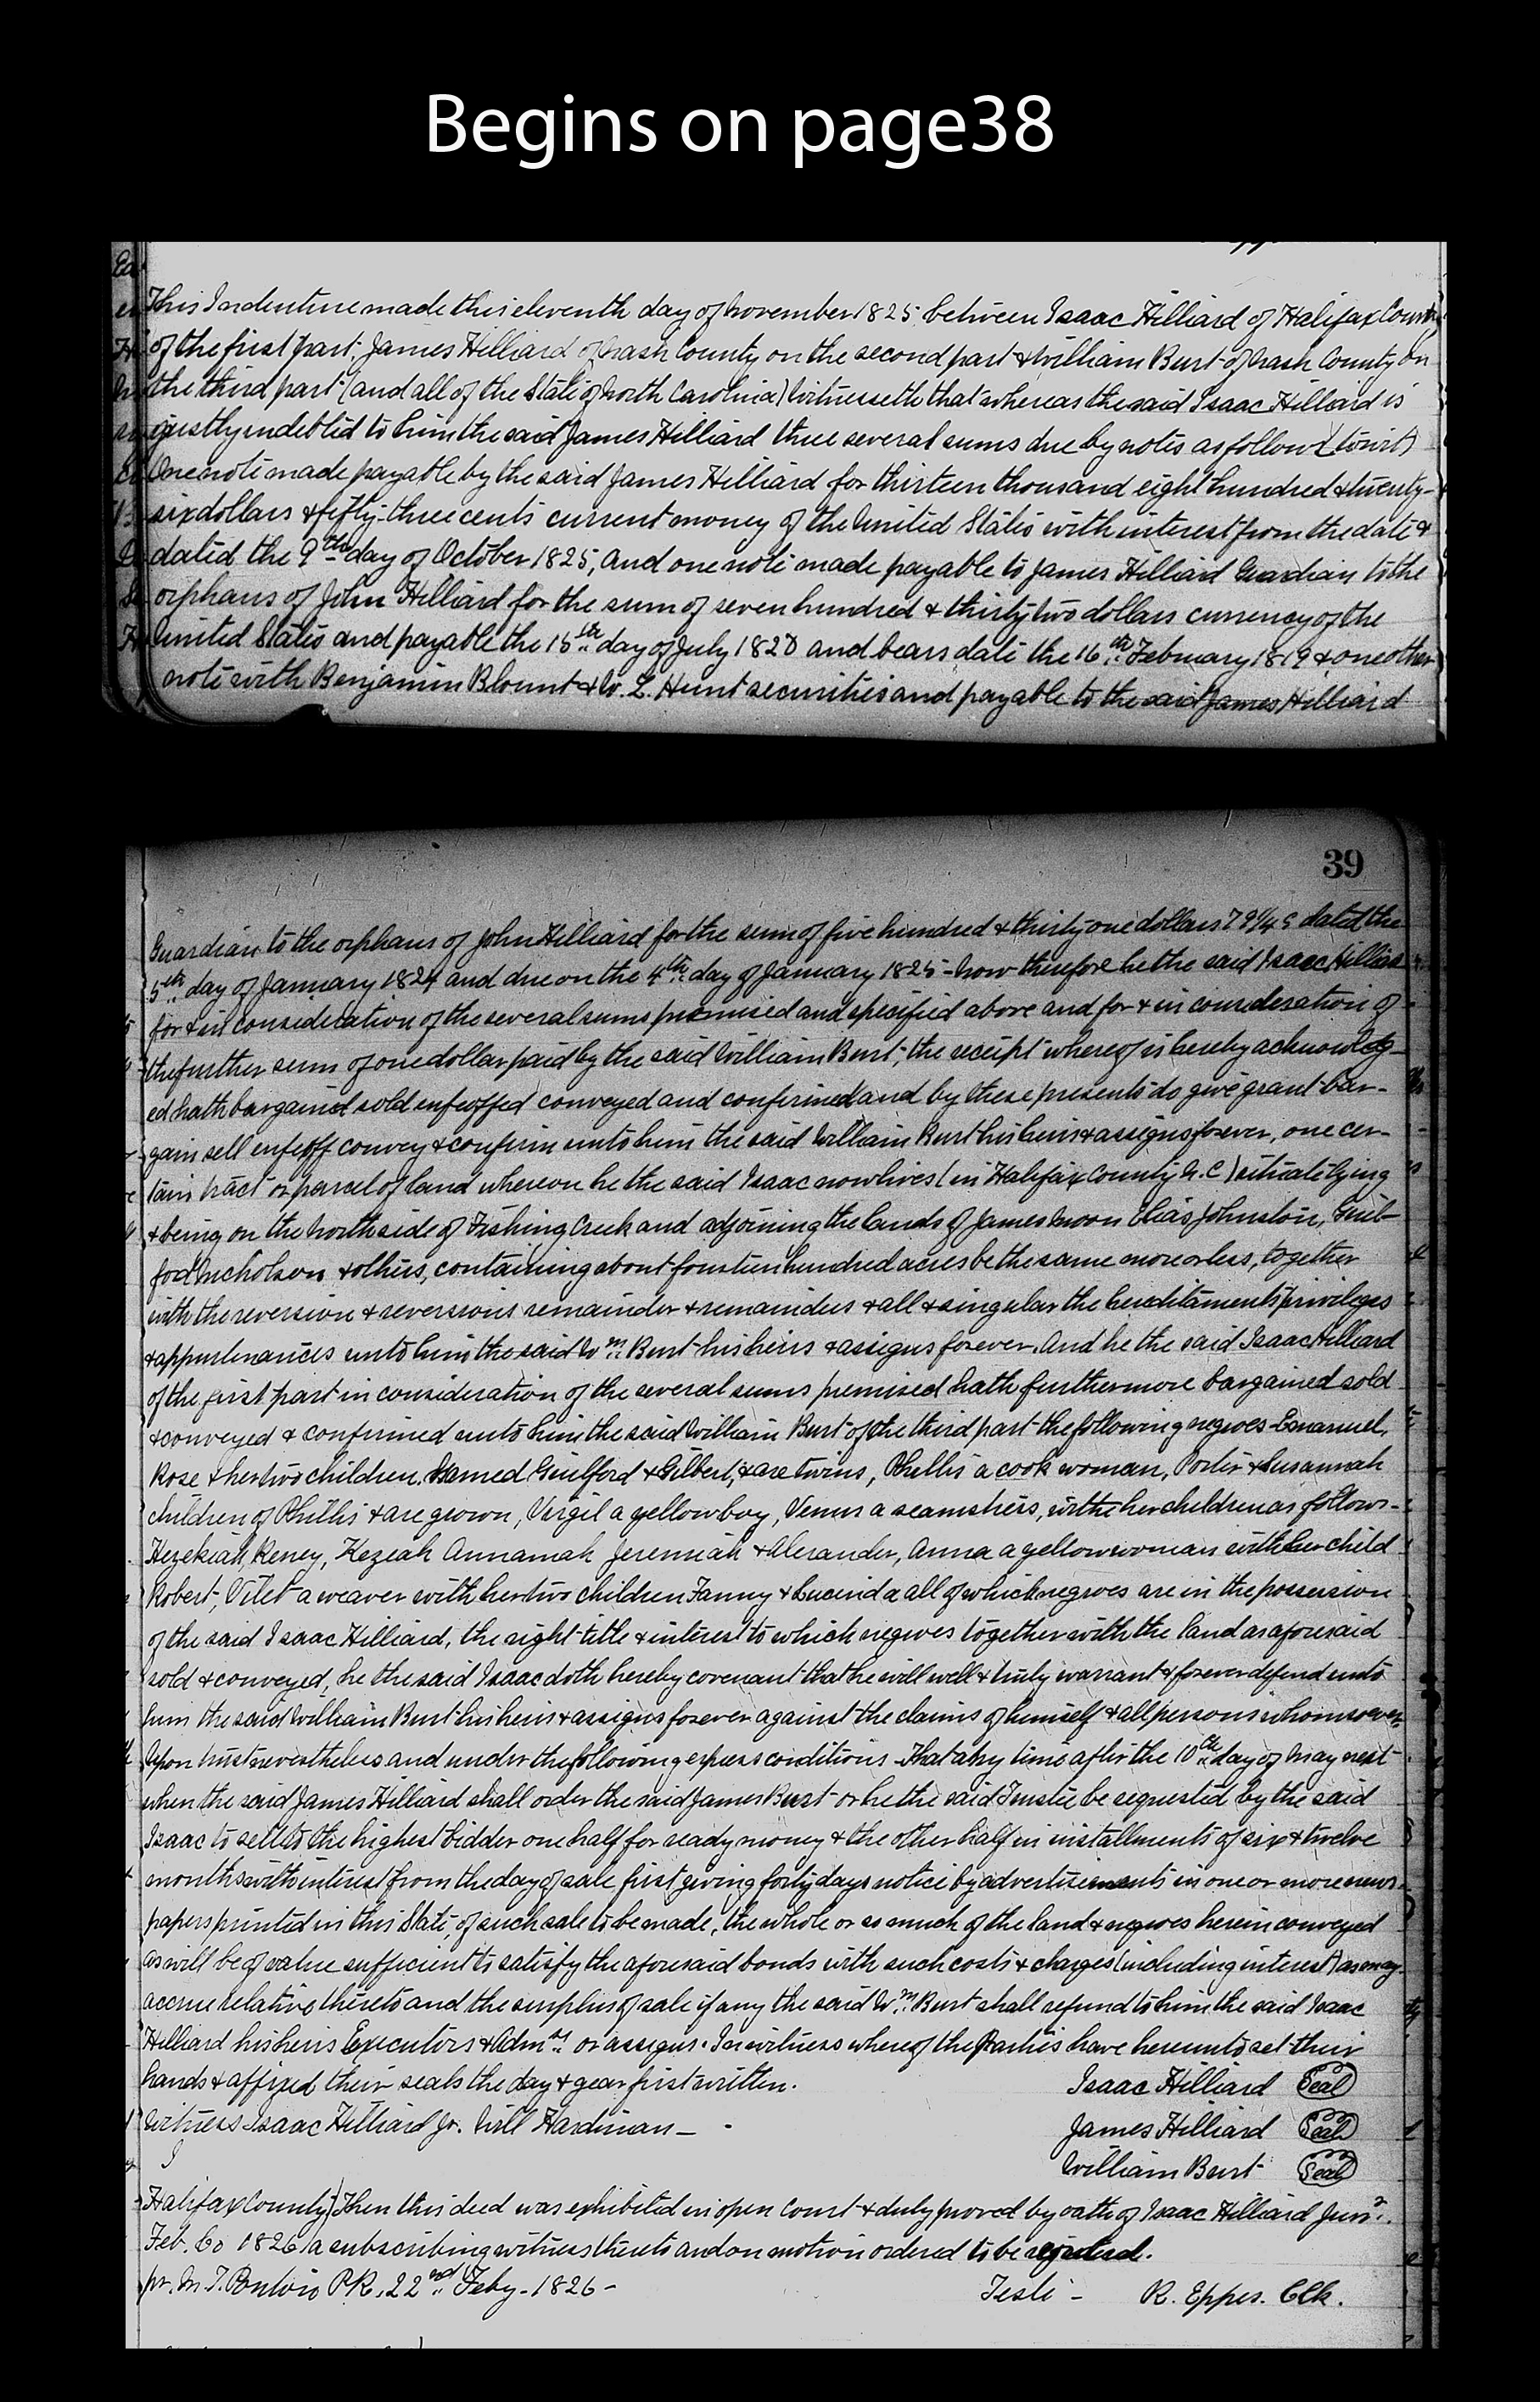 Begins on page38
This Indenture made this eleventh day of November 1825 between Isaac Hilliard of Halifax County
of the first part, James Hilliard of Nash County on the second part & William Burt of Nash County on
the third part (and all of the State of North Carolina) Witnesseth that whereas the said Isaac Hilliard is
justly indebted to him the said James Hilliard three several sums due by notes as follows (towit)
One note made payable by the said James Hilliard for thirteen thousand eight hundred & twenty-
six dollars & fifty-three cents current money of the United States with interest from the date &
dated the 9th day of October 1825, And one note made payable to James Hilliard Guardian to the
orphans of John Hilliard for the sum of seven hundred & thirty two dollars currency of the
United States and payable the 15th day of July 1820 and bears date the 16th February 1819 & one other
note with Benjamin Blount & W. L. Hunt securities and payable to the said James Hilliard
39
Guardian to the orphans of John Hilliard for the sum of five hundred & thirty one dollars dated the
5th day of January 1824 and due on the 4th day of January 1825 - Now therefore he the said Isaac Hilliard
for & in consideration of the several sums promised and specified above and for & in consideration of
the further sum of one dollar paid by the said William Burt, the receipt whereof is hereby acknowledg-
ed hath bargained sold enfeoffed conveyed and confirmed and by these presents do give grant bar-
gain sell enfeoff convey & confirm unto him the said William Burt his heirs & assigns forever, one cer-
tain tract or parcel of land whereon he the said Isaac now lives (in Halifax County N.C) situate lying
& being on the North side of Fishing Creek and adjoining the lands of James Moon Elias Johnston, Guil-
ford Nicholson & others, containing about fourteen hundred acres be the same more or less, together
with the reversion & reversions remainder & remainders & all & singular the hereditaments privileges
& appurtenances unto him the said Wm Burt his heirs & assigns forever. And he the said Isaac Hilliard
of the first part in consideration of the several sums premised hath furthermore bargained sold
& conveyed & confirmed unto him the said William Burt of the third part the following negroes - Emanuel,
Rose & her two children Named Guilford & Gilbert, & are twins, Phellis a cook woman, Porter & Susannah
children of Phillis & are grown, Virgil a yellow boy, Venus a seamstress, with her children as follows -
Hezekiah, Reney, Kezeah Annamah Jeremiah & Alexander, Anna a yellow woman with her child
Robert, Vilet a weaver with her two children Fanny & Lucinda all of which negroes are in the possession
of the said Isaac Hilliard, the right title & interest to which negroes together with the land as aforesaid
sold & conveyed, he the said Isaac doth hereby covenant that he will well & truly warrant & forever defend unto
him the said William Burt his heirs & assigns forever against the claims of himself & all persons whomsoever
Upon trust nevertheless and under the following express conditions - That at any time after the 10th day of May next
when the said James Hilliard shall order the said James Burt or he the said Trustee be requested by the said
Isaac to sell to the highest bidder one half for ready money & the other half in installments of six & twelve
months with interest from the day of sale first giving forty days notice by advertisements in one or more news-
papers printed in this State, of such sale to be made, the whole or so much of the land & negroes herein conveyed
as will be of value sufficient to satisfy the aforesaid bonds with such costs & charges (including interest) as may
accrue relative thereto and the surplus of sale if any the said Wm Burt shall refund to him the said Isaac
Hilliard his heirs Executors & Admrs or assigns. In witness whereof the Parties have hereunto set their
hands & affixed their seals the day & year first written. Isaac Hilliard Seal
Witness Isaac Hilliard Jr. Will Hardiman - James Hilliard Seal
William Burt Seal
Halifax County) Then this deed was exhibited in open Court & duly proved by oath of Isaac Hilliard Junr.
Feb. Co 1826) a subscribing witness thereto and on motion ordered to be registered.
pr. M. T. Ponton P.R. 22nd Feby - 1826 - Teste - R. Eppes. Clk.